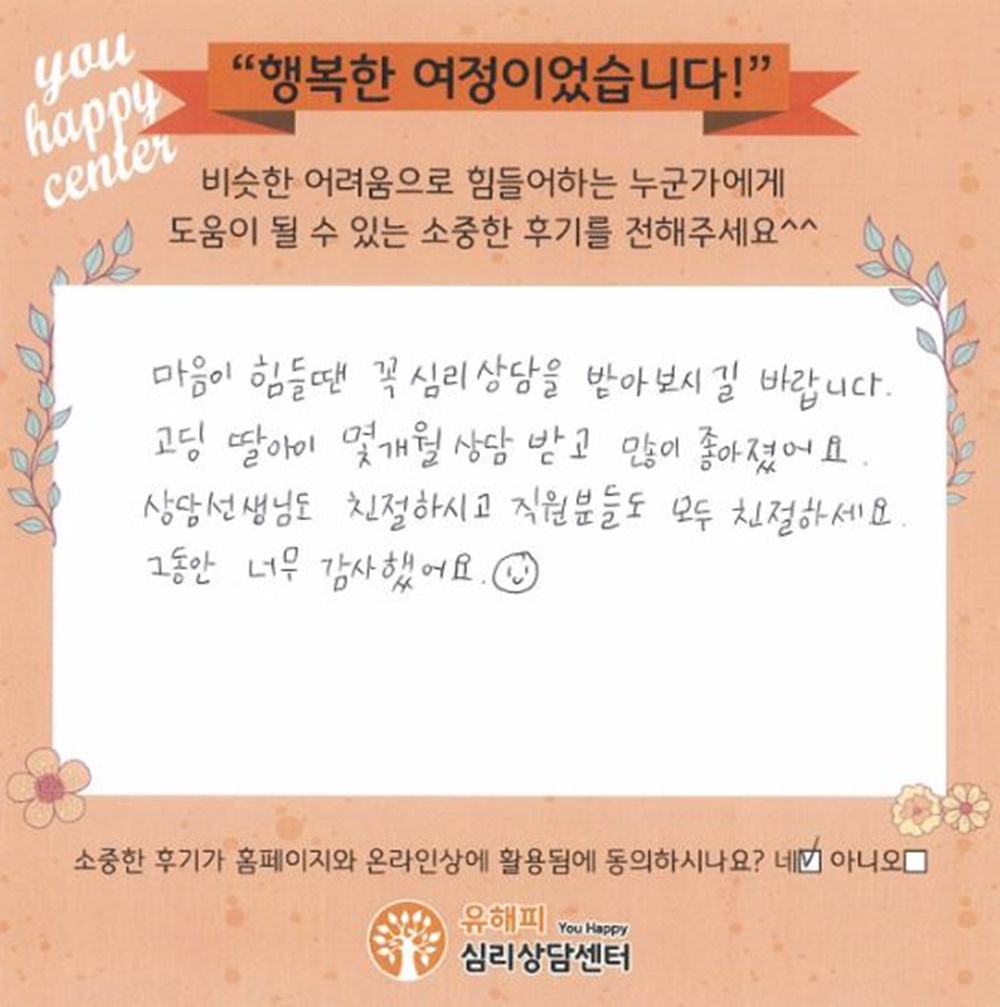 you
happy
center
“행복한 여정이었습니다!”
비슷한 어려움으로 힘들어하는 누군가에게
도움이 될 수 있는 소중한 후기를 전해주세요^^
마음이 힘들땐 꼭 심리상담을 받아보시길 바랍니다.
고딩 딸아이 몇개월 상담 받고 많이 좋아졌어요.
상담선생님도 친절하시고 직원분들도 모두 친절하세요.
그동안 너무 감사했어요.
소중한 후기가 홈페이지와 온라인상에 활용됨에 동의하시나요? 네☑ 아니오☐
유해피 You Happy
심리상담센터